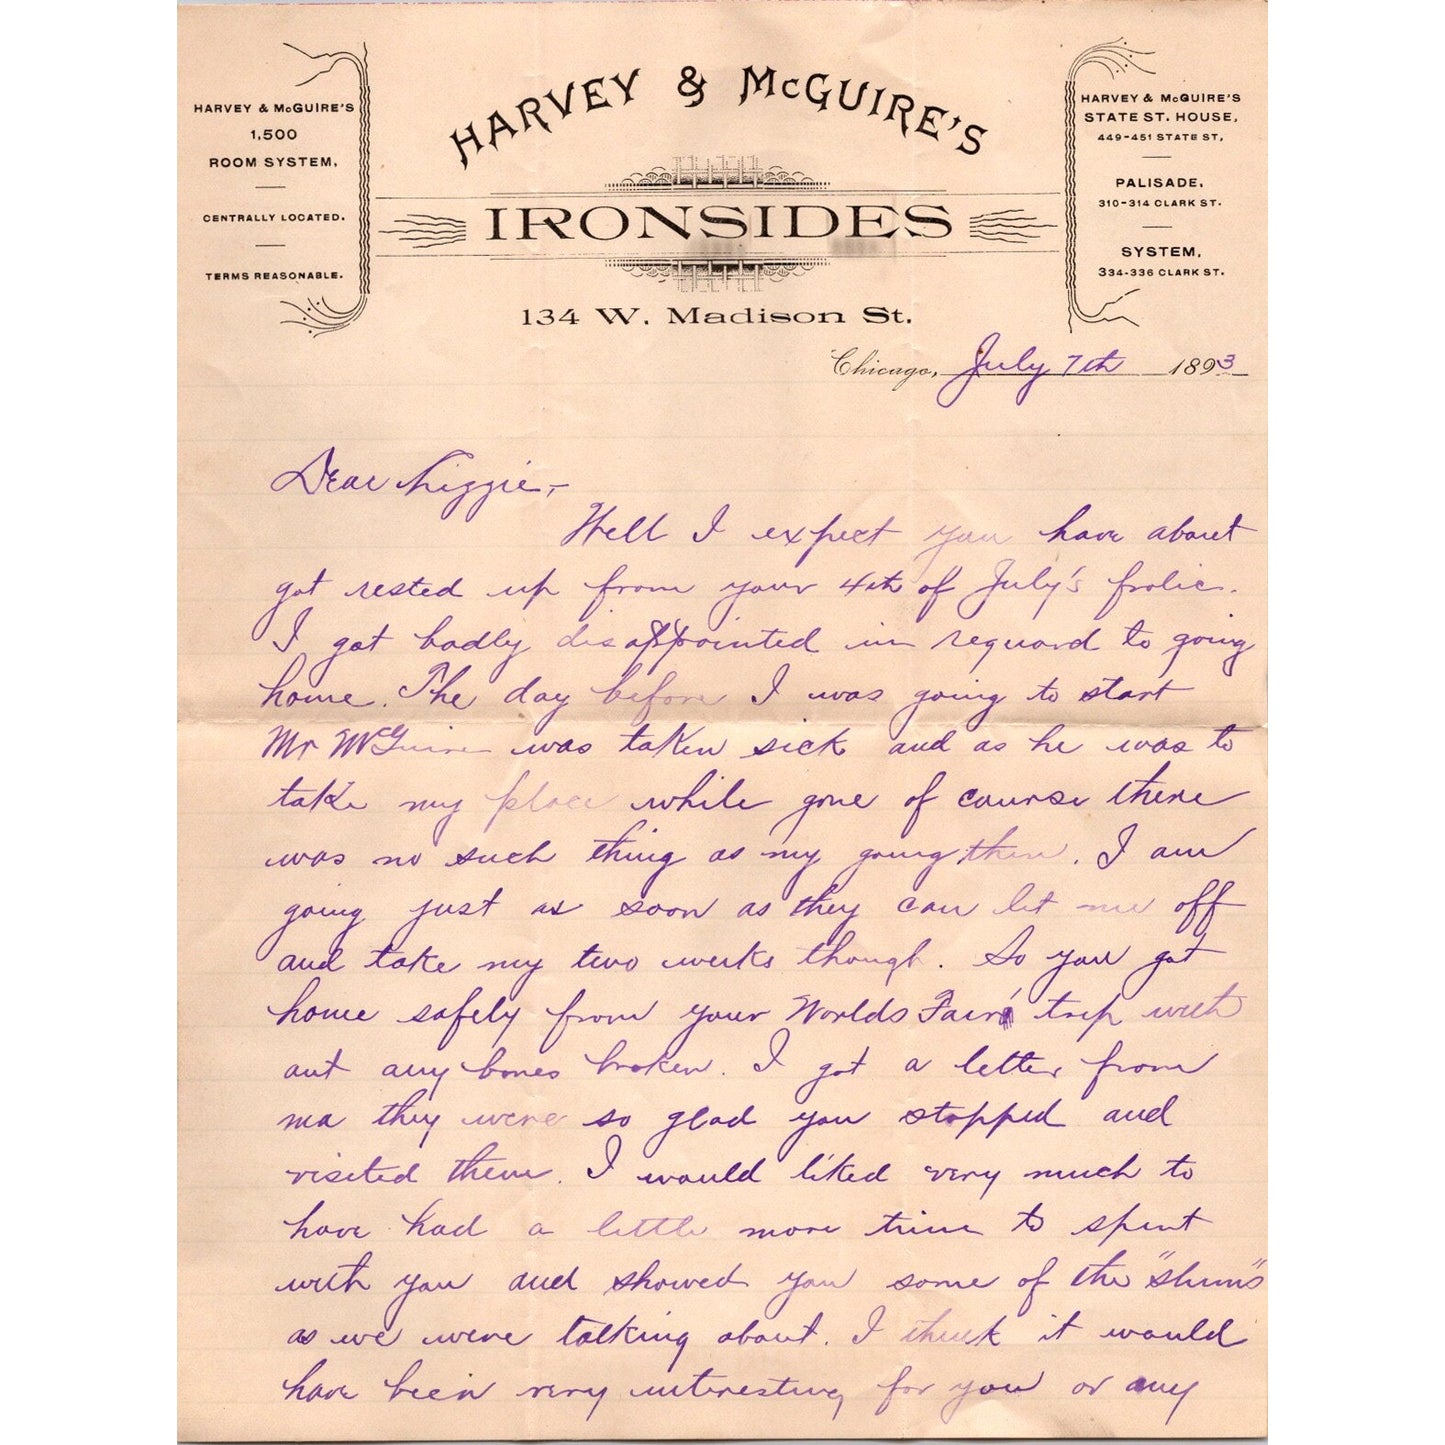 HARVEY & McGUIRE'S
1,500
ROOM SYSTEM.
CENTRALLY LOCATED.
TERMS REASONABLE.
HARVEY & McGUIRE'S
IRONSIDES
134 W. Madison St.
HARVEY & McGUIRE'S
STATE ST. HOUSE,
449-451 STATE ST,
PALISADE,
310-314 CLARK ST.
SYSTEM,
334-336 CLARK ST.
Chicago, July 7th 1893
Dear Lizzie,-
Well I expect you have about
got rested up from your 4th of July's frolic.
I got badly disappointed in reguard to going
home. The day before I was going to start
Mr McGuire was taken sick and as he was to
take my place while gone of course there
was no such thing as my going then. I am
going just as soon as they can let me off
and take my two weeks though. So you got
home safely from your Worlds Fair trip with
out any bones broken. I got a letter from
ma they were so glad you stopped and
visited them. I would liked very much to
have had a little more time to spent
with you and showed you some of the "slums"
as we were talking about. I think it would
have been very interesting for you or any